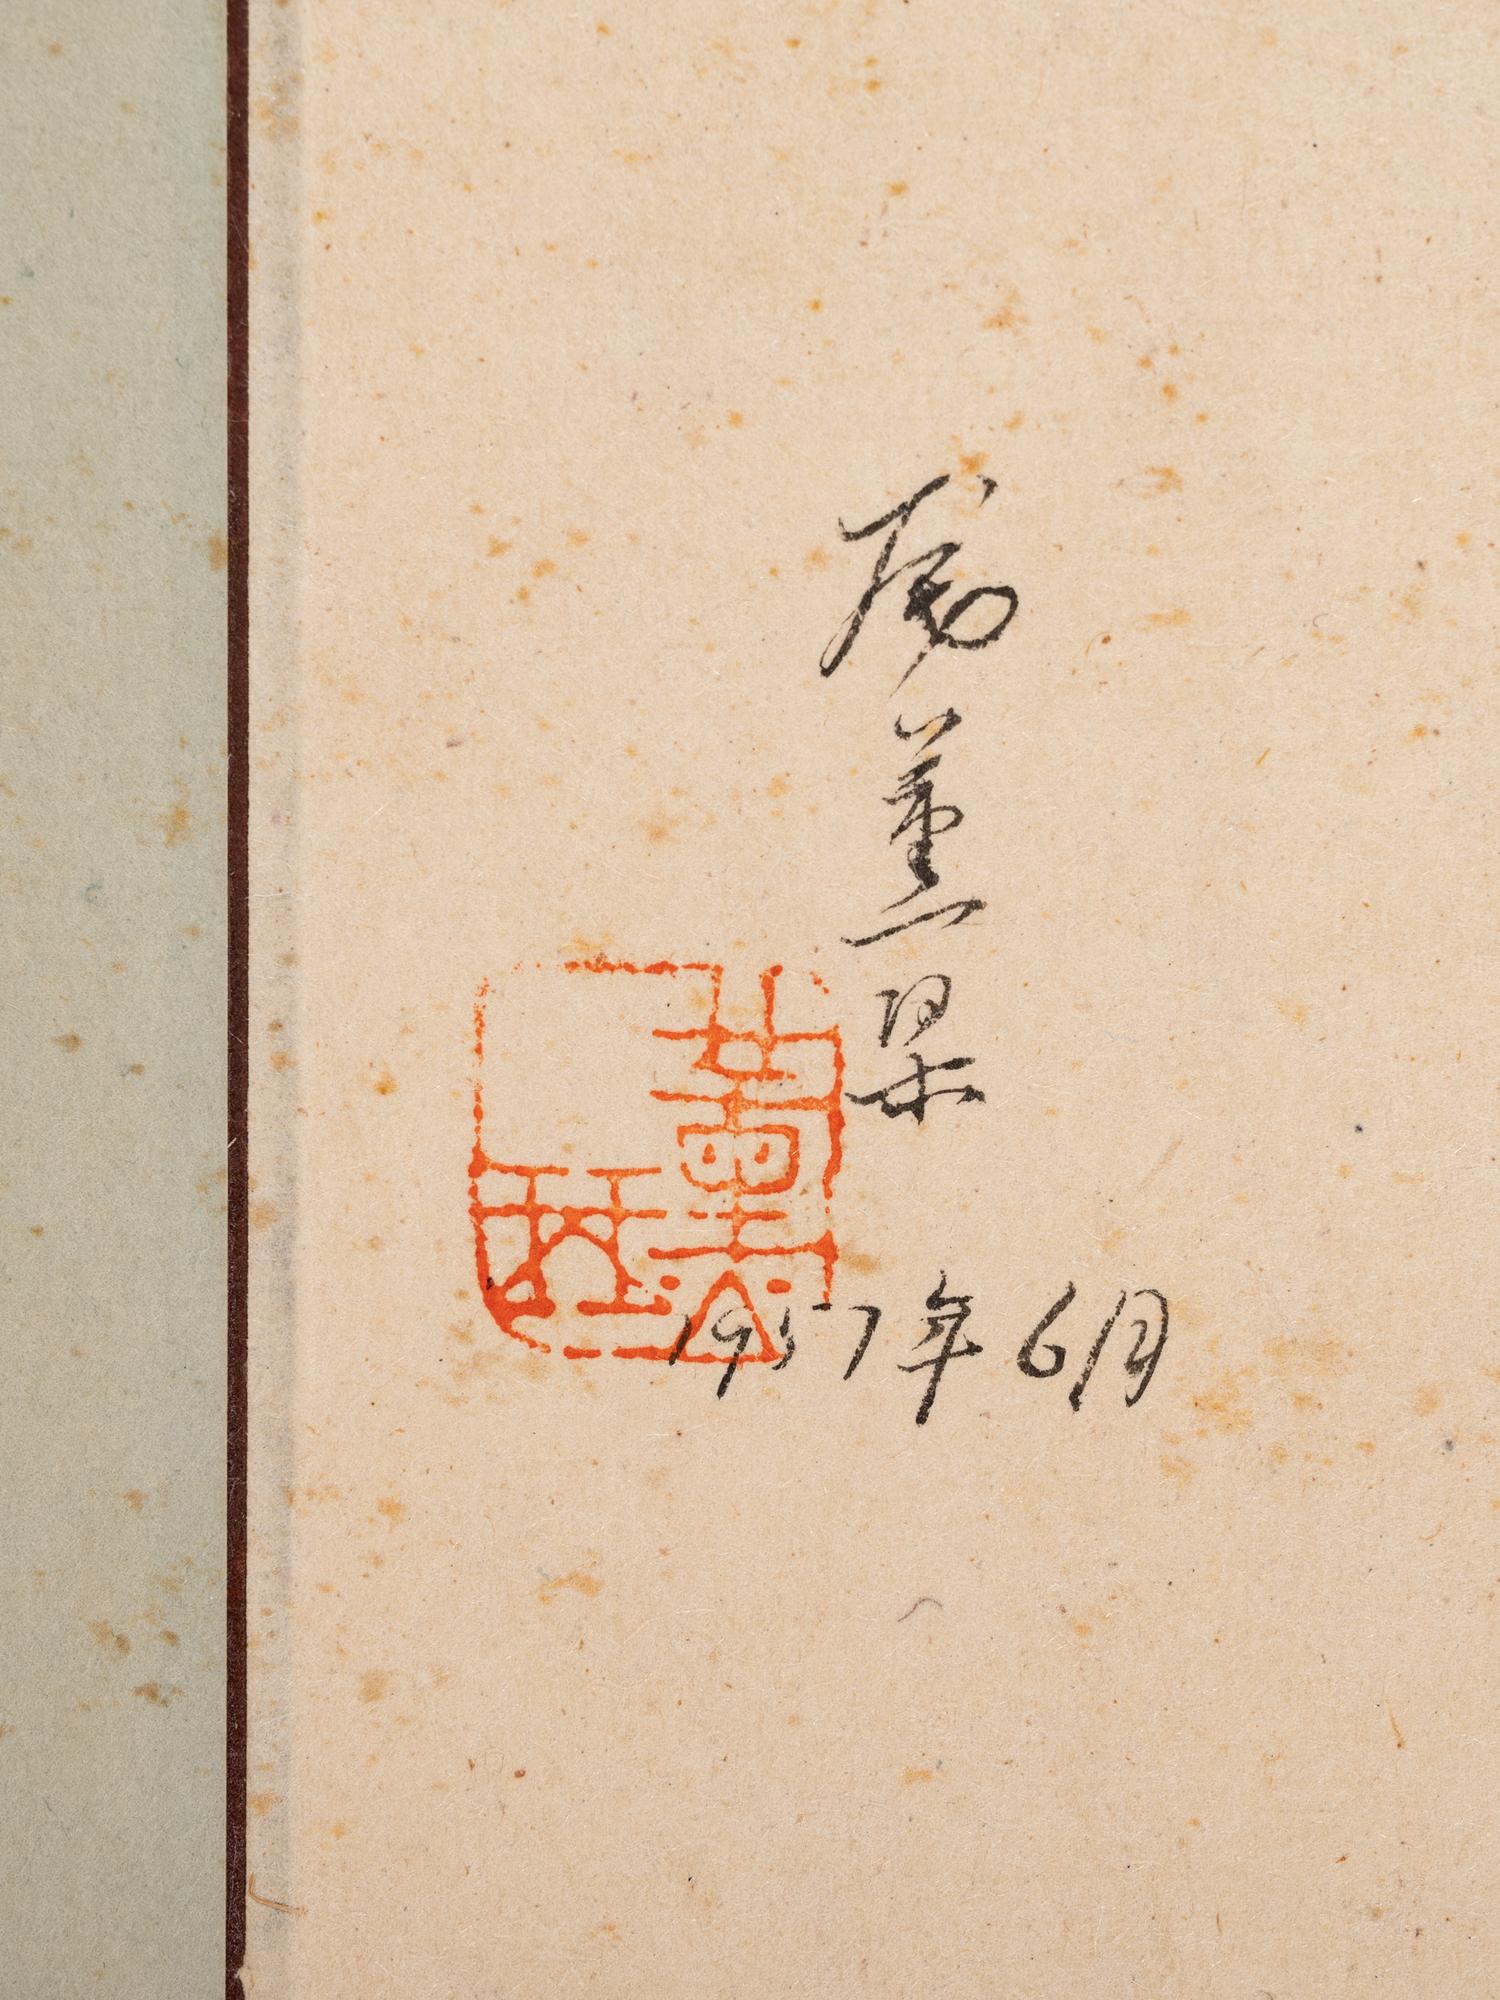 庞薰琹
1957年6月
薰琴